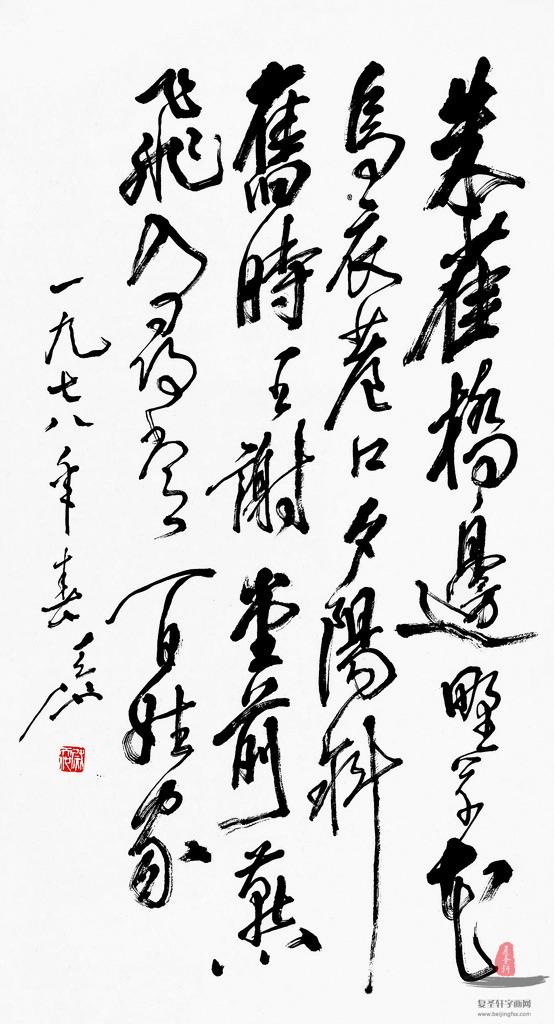 朱雀橋邊野草花
烏衣巷口夕陽斜
舊時王謝堂前燕
飛入尋常百姓家
一九七八年春
复圣轩字画网
www.beijingfsx.com